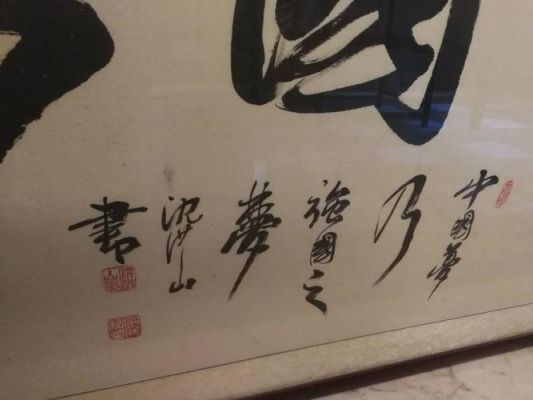 中國夢
乃
強國之
夢
沈洪山
書